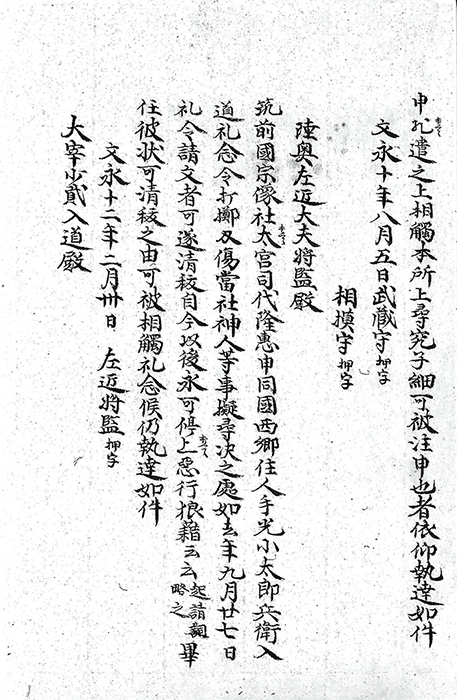 申札遣之上相觸本所上尋究子細可被注申也者依仰執達如件
文永十年八月五日武蔵守押字
相摸守押字
陸奥左近大夫将監殿
筑前國宗像社大宮司代隆惠申同國西郷住人手光小太郎兵衛入
道礼念令打擲刃傷當社神人等事擬尋決之處如去年九月廿七日
礼念請文者可遂清祓自今以後永可停止惡行狼藉云云起請詞略之畢
任彼状可清祓之由可被相觸礼念候仍執達如件
文永十二年二月卅日 左近将監押字
大宰少貳入道殿